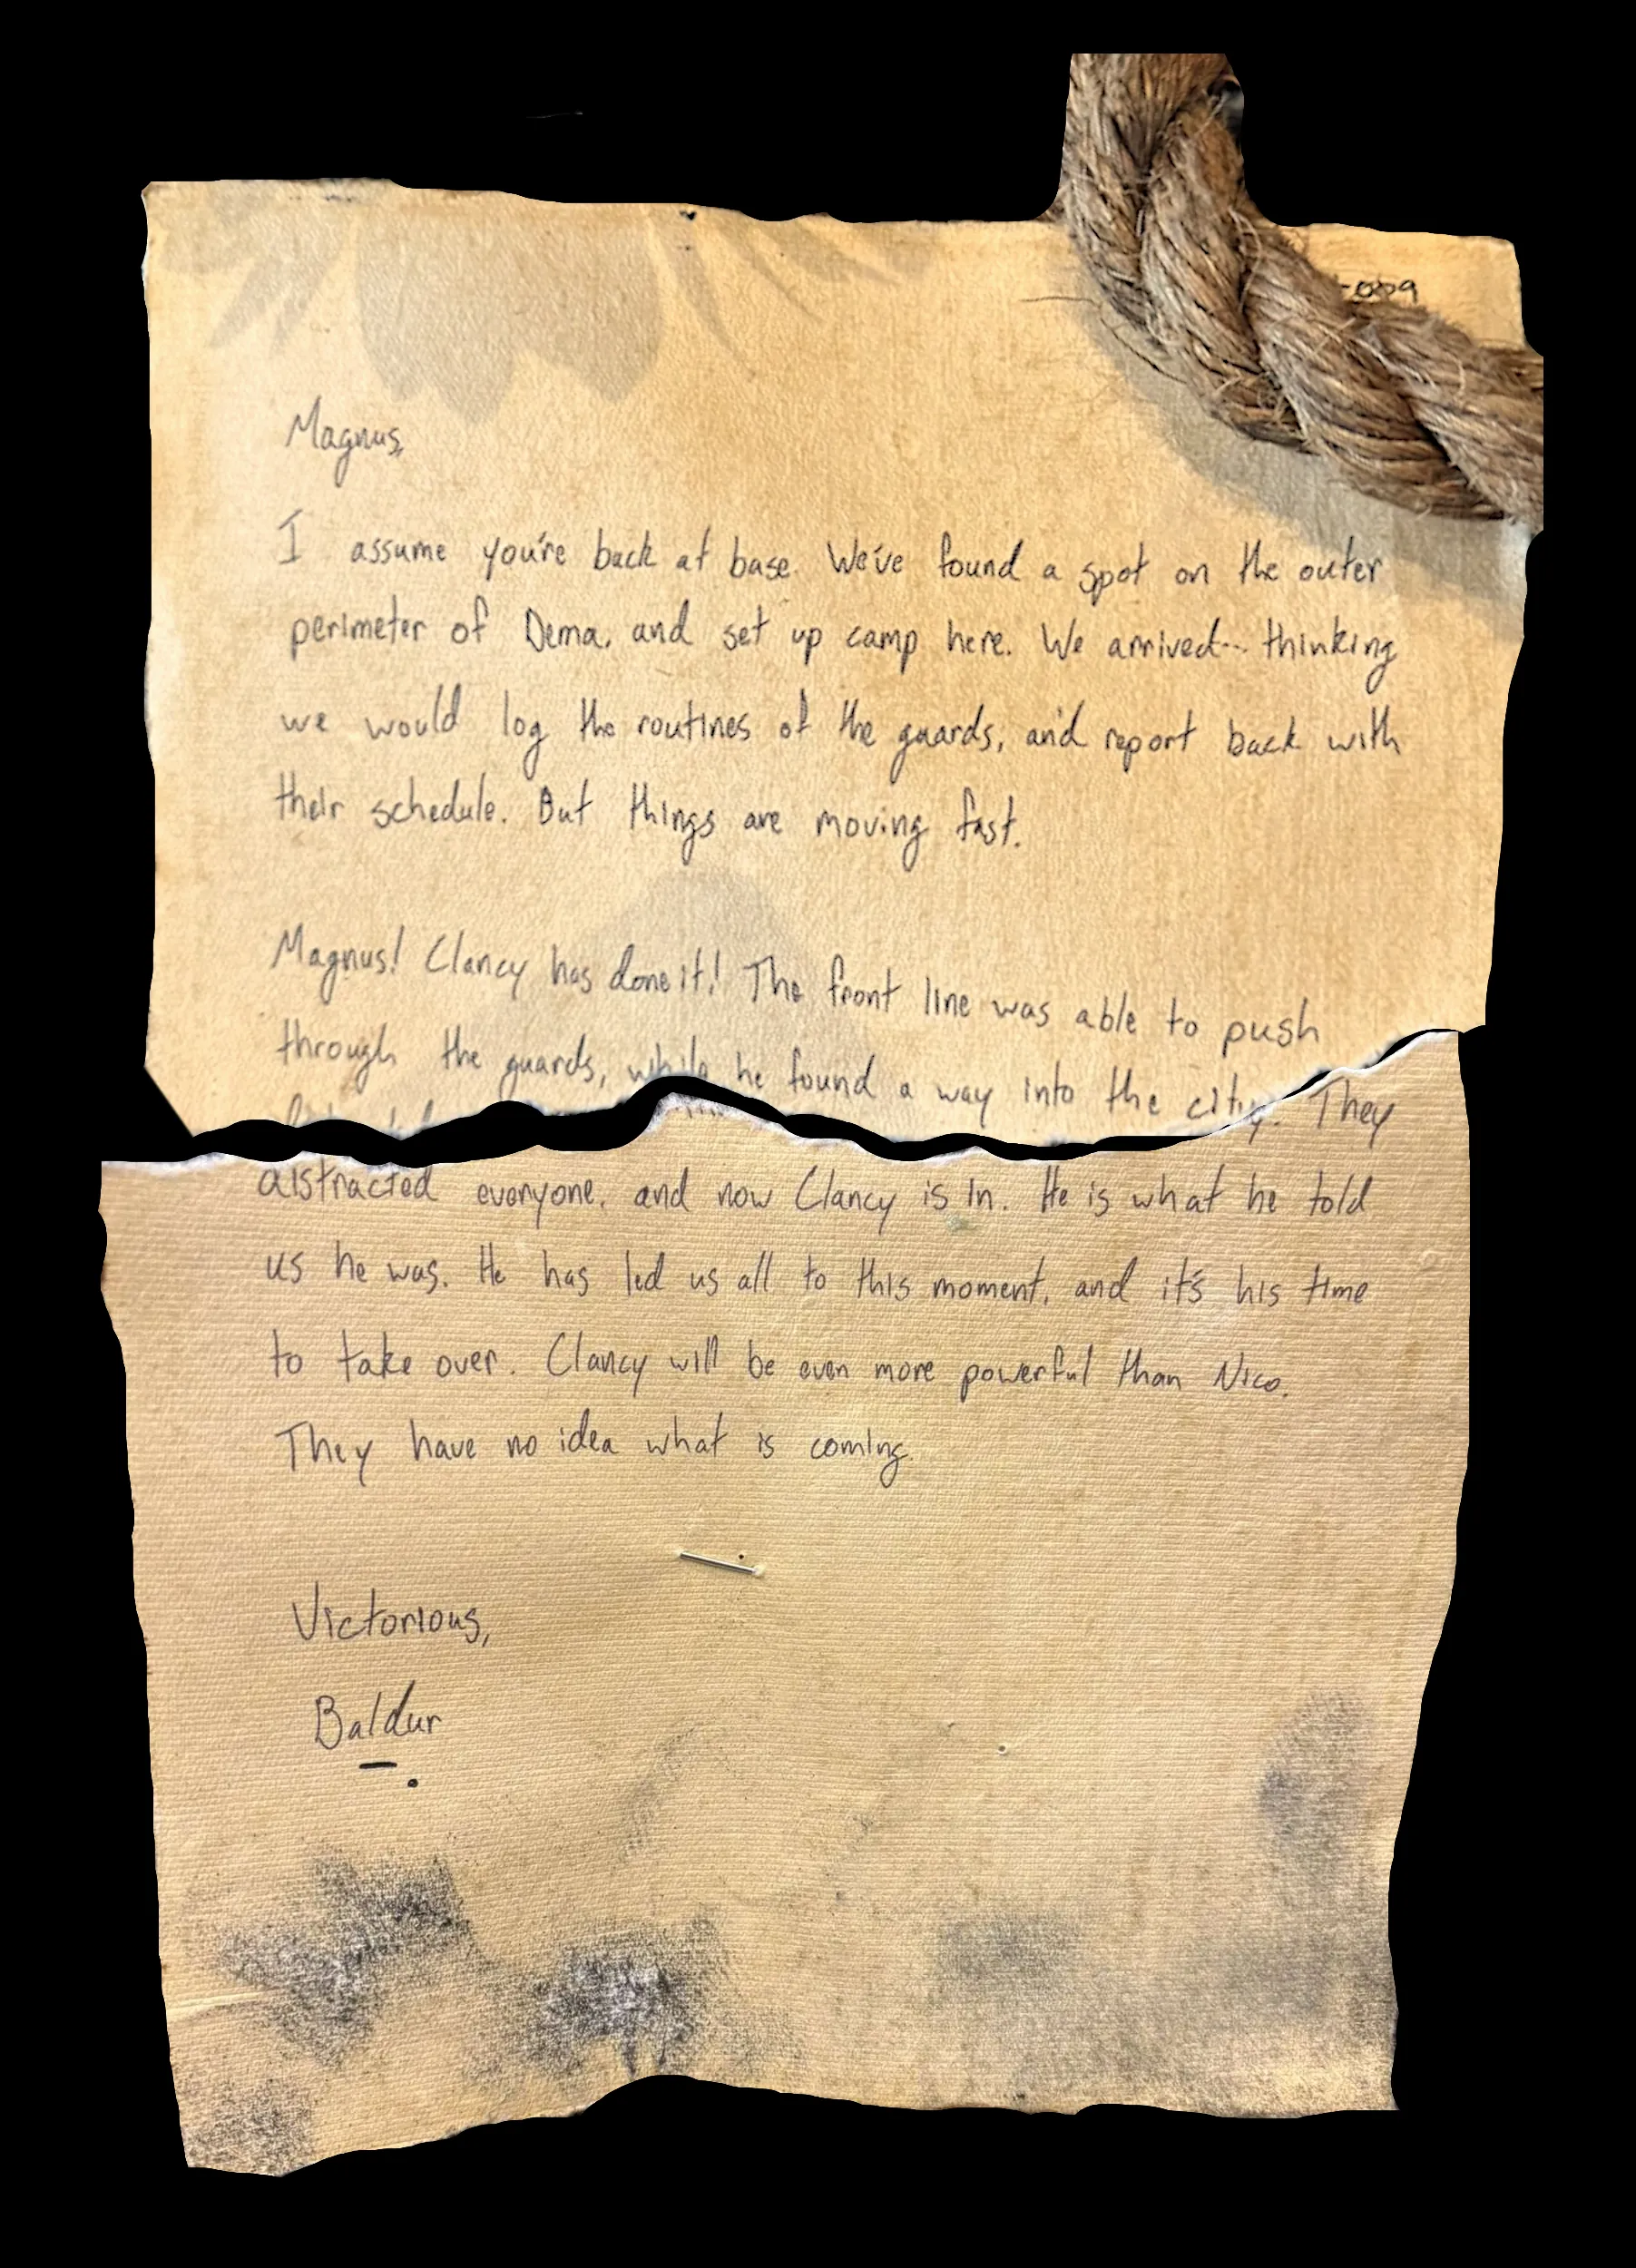 Magnus,
I assume you're back at base. We've found a spot on the outer
perimeter of Dema, and set up camp here. We arrived... thinking
we would log the routines of the guards, and report back with
their schedule. But things are moving fast.
Magnus! Clancy has done it! The front line was able to push
through the guards, while he found a way into the city. They
distracted everyone, and now Clancy is in. He is what he told
us he was. He has led us all to this moment, and it's his time
to take over. Clancy will be even more powerful than Nico.
They have no idea what is coming.
Victorious,
Baldur